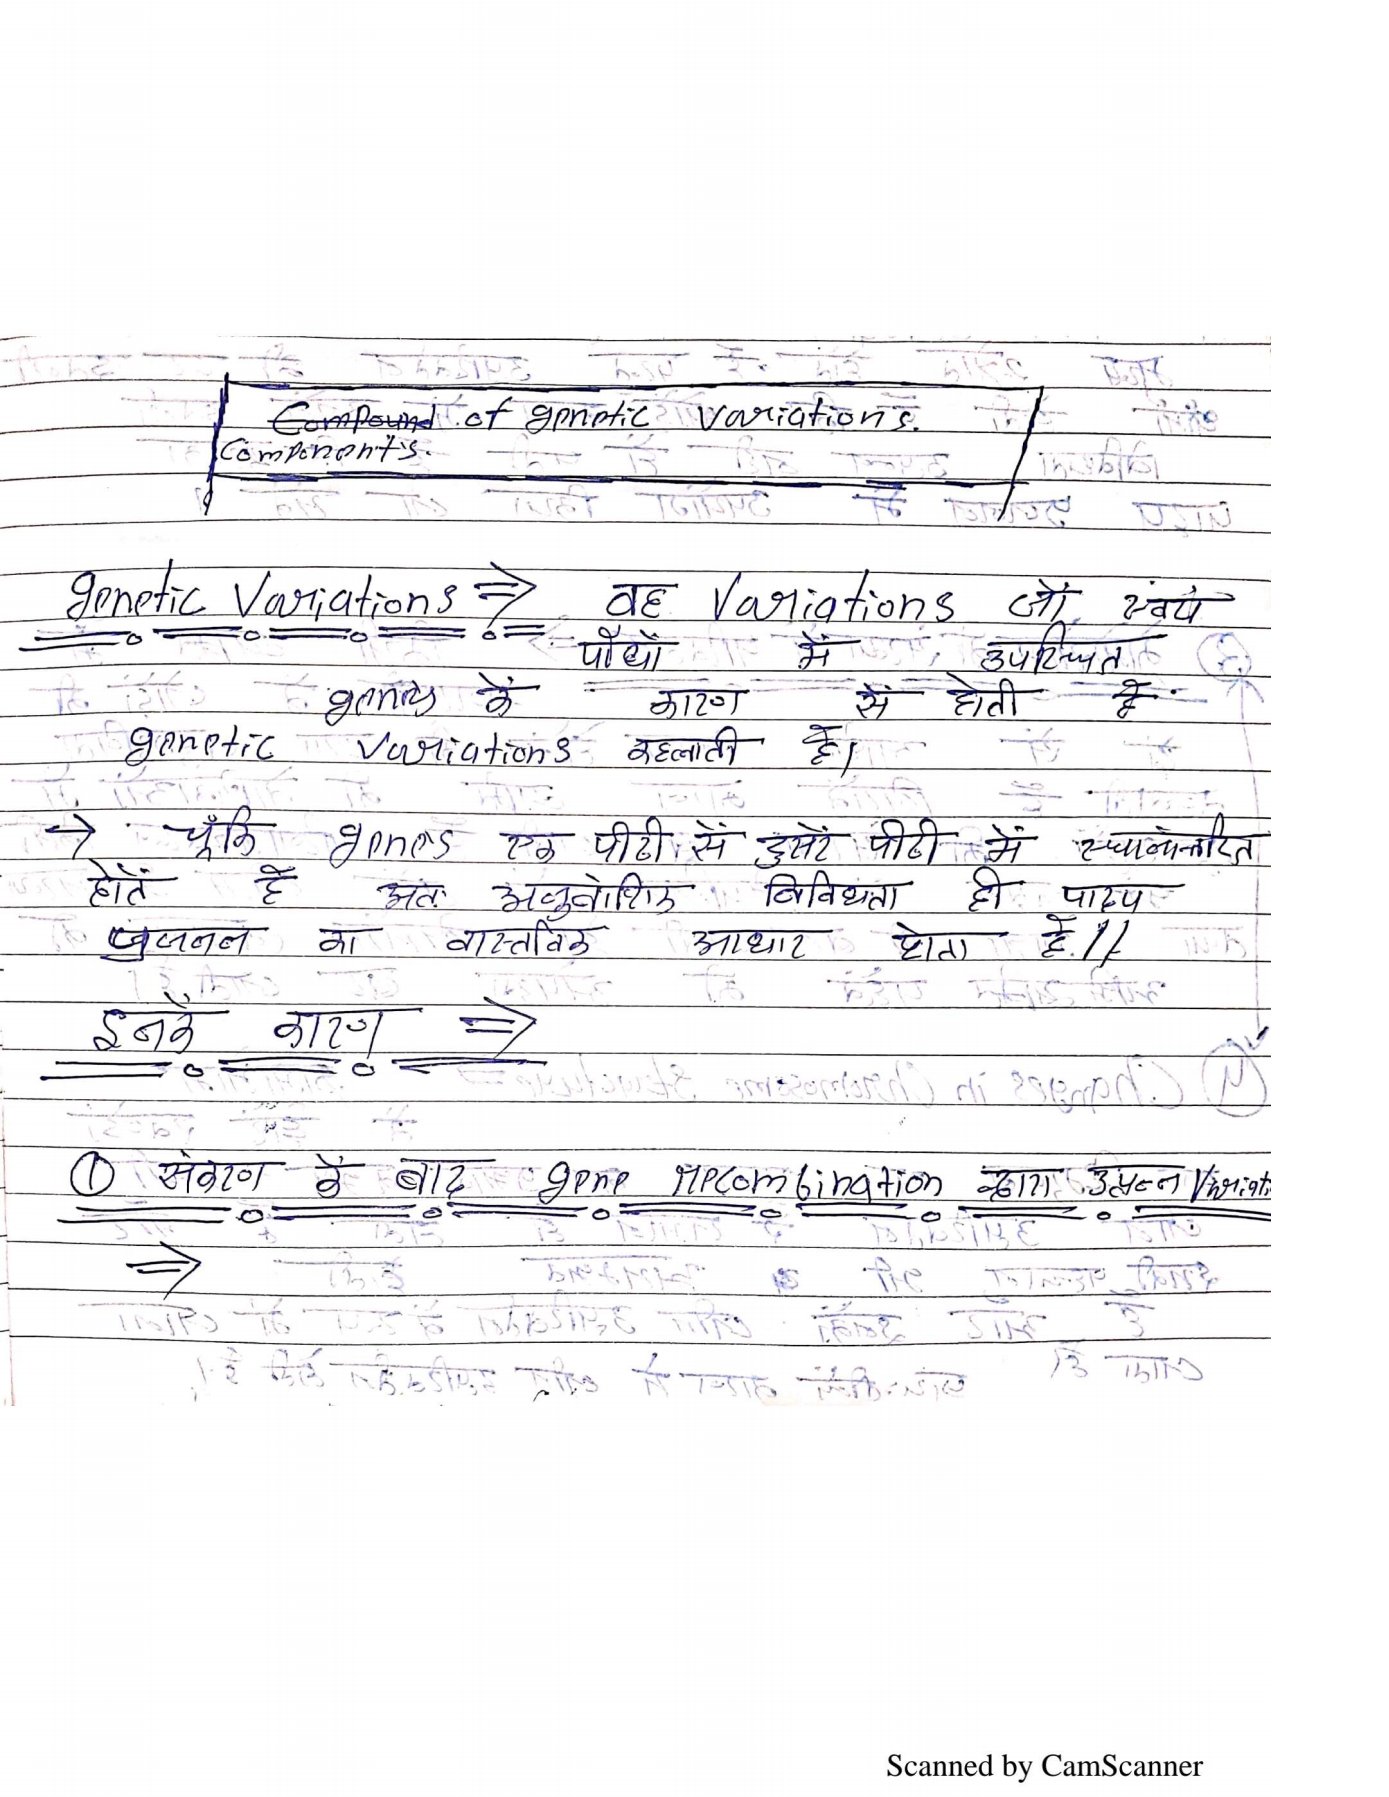 Compound of genetic variations.
Components.
genetic Variations ⇒ वह Variations जो स्वयं
पौधों में उपस्थित
genes के कारण से होती है
genetic variations कहलाती है।
→ चूंकि genes एक पीढी से दुसरे पीढी में स्थानान्तरित
होतें है अतः अनुवांशिक विविधता ही पादप
प्रजनन का वास्तविक आधार होता है।।
इनके कारण ⇒
① संकरण के बाद gene recombination द्वारा उत्पन्न Variati
⇒
Scanned by CamScanner